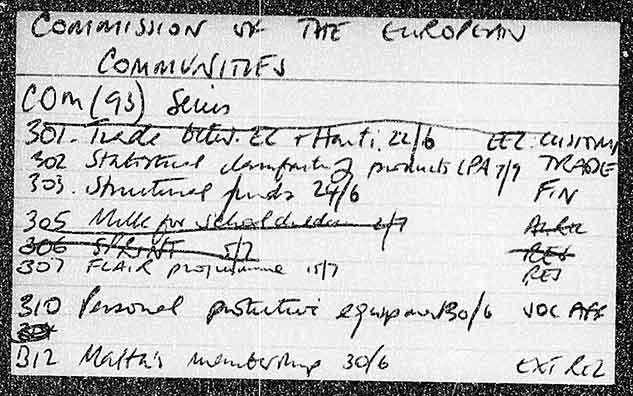 COMMISSION OF THE EUROPEAN
COMMUNITIES
COM (93) Series
301. Trade betw. EC + Haiti. 22/6 EEC CUSTOMS
302 Statistical classification of products CPA 7/9 TRADE
303. Structural funds 24/6 FIN
305 Milk for schoolchildren 2/7 AGRIC
306 SPRINT 5/7 RES
307 FLAIR programme 15/7 RES
310 Personal protective equipment 30/6 SOC AFF
312 Malta's membership 30/6 EXT REL